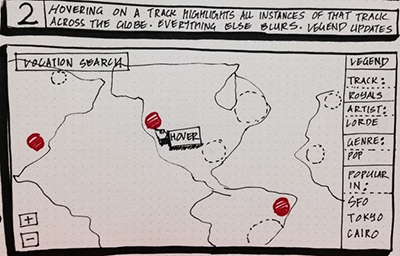 2
HOVERING ON A TRACK HIGHLIGHTS ALL INSTANCES OF THAT TRACK
ACROSS THE GLOBE. EVERYTHING ELSE BLURS. LEGEND UPDATES
LOCATION SEARCH
HOVER
+
-
LEGEND
TRACK:
ROYALS
ARTIST:
LORDE
GENRE:
POP
POPULAR
IN:
SFO
TOKYO
CAIRO